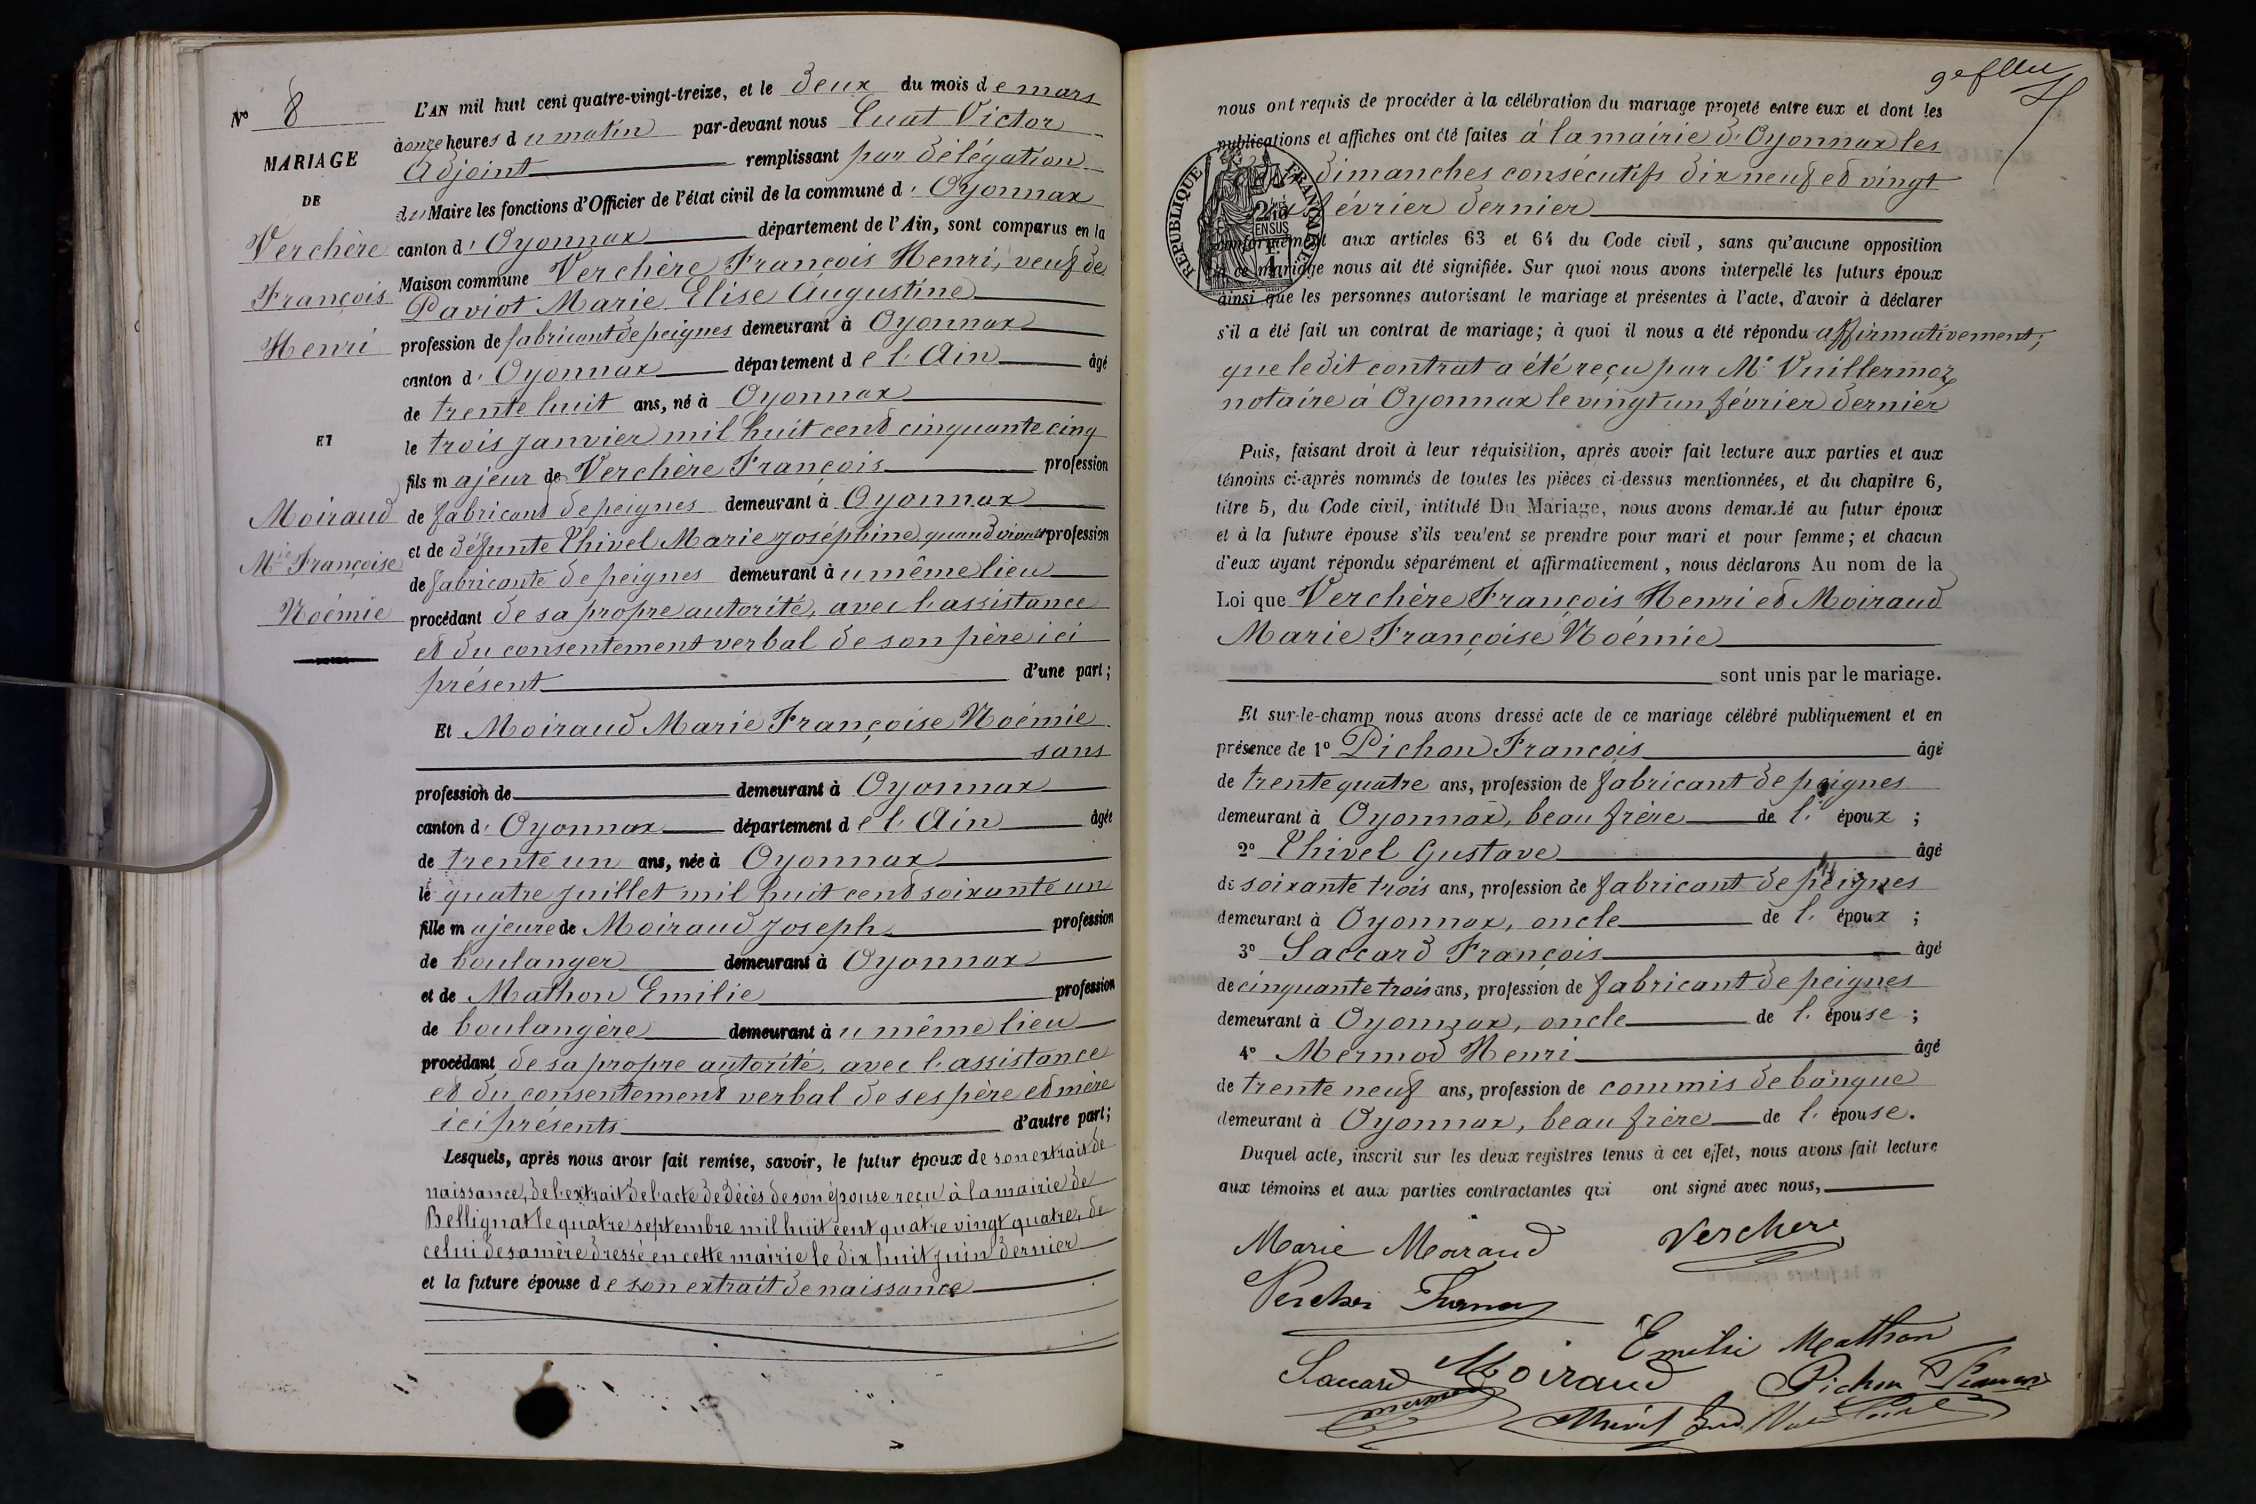 N° 8
MARIAGE
DE
Verchère
François
Henri
ET
Moiraud
Mie Françoise
Noémie
L'AN mil huit cent quatre-vingt-treize, et le deux du mois de mars
à onze heures du matin par-devant nous Cuat Victor
Adjoint remplissant par délégation
du Maire les fonctions d'Officier de l'état civil de la commune d'Oyonnax
canton d'Oyonnax département de l'Ain, sont comparus en la
Maison commune Verchère François Henri, veuf de
Paviot Marie Elise Augustine
profession de fabricant de peignes demeurant à Oyonnax
canton d'Oyonnax département de l'Ain âgé
de trente huit ans, né à Oyonnax
le trois janvier mil huit cent cinquante cinq
fils majeur de Verchère François profession
de fabricant de peignes demeurant à Oyonnax
et de défunte Thivel Marie Joséphine quand vivait profession
de fabricante de peignes demeurant au même lieu
procédant de sa propre autorité, avec l'assistance
et du consentement verbal de son père ici
présent d'une part;
Et Moiraud Marie Françoise Noémie
sans
profession de demeurant à Oyonnax
canton d'Oyonnax département de l'Ain âgée
de trente un ans, née à Oyonnax
le quatre juillet mil huit cent soixante un
fille majeure de Moiraud Joseph profession
de boulanger demeurant à Oyonnax
et de Mathon Emilie profession
de boulangère demeurant au même lieu
procédant de sa propre autorité, avec l'assistance
et du consentement verbal de ses père et mère
ici présents d'autre part;
Lesquels, après nous avoir fait remise, savoir, le futur époux de son extrait de
naissance, de l'extrait de l'acte de décès de son épouse reçu à la mairie de
Bellignat le quatre septembre mil huit cent quatre vingt quatre, de
celui de sa mère dressé en cette mairie le dix huit juin dernier
et la future épouse de son extrait de naissance
nous ont requis de procéder à la célébration du mariage projeté entre eux et dont les
publications et affiches ont été faites à la mairie d'Oyonnax les
dimanches consécutifs dix neuf et vingt
février dernier
RÉPUBLIQUE FRANÇAISE
conformément aux articles 63 et 64 du Code civil, sans qu'aucune opposition
à ce mariage nous ait été signifiée. Sur quoi nous avons interpellé les futurs époux
ainsi que les personnes autorisant le mariage et présentes à l'acte, d'avoir à déclarer
s'il a été fait un contrat de mariage; à quoi il nous a été répondu affirmativement;
que le dit contrat a été reçu par Me Vuillermoz
notaire à Oyonnax le vingt un février dernier
Puis, faisant droit à leur réquisition, après avoir fait lecture aux parties et aux
témoins ci-après nommés de toutes les pièces ci-dessus mentionnées, et du chapitre 6,
titre 5, du Code civil, intitulé Du Mariage, nous avons demandé au futur époux
et à la future épouse s'ils veulent se prendre pour mari et pour femme; et chacun
d'eux ayant répondu séparément et affirmativement, nous déclarons Au nom de la
Loi que Verchère François Henri et Moiraud
Marie Françoise Noémie
sont unis par le mariage.
Et sur-le-champ nous avons dressé acte de ce mariage célébré publiquement et en
présence de 1° Pichon François âgé
de trente quatre ans, profession de fabricant de peignes
demeurant à Oyonnax, beau frère de l'époux;
2° Thivel Gustave âgé
de soixante trois ans, profession de fabricant de peignes
demeurant à Oyonnax, oncle de l'époux;
3° Saccard François âgé
de cinquante trois ans, profession de fabricant de peignes
demeurant à Oyonnax, oncle de l'épouse;
4° Mermod Henri âgé
de trente neuf ans, profession de commis de banque
demeurant à Oyonnax, beau frère de l'épouse.
Duquel acte, inscrit sur les deux registres tenus à cet effet, nous avons fait lecture
aux témoins et aux parties contractantes qui ont signé avec nous,
Marie Moiraud Verchere
Emilie Matthon
Saccard Moiraud Pichon